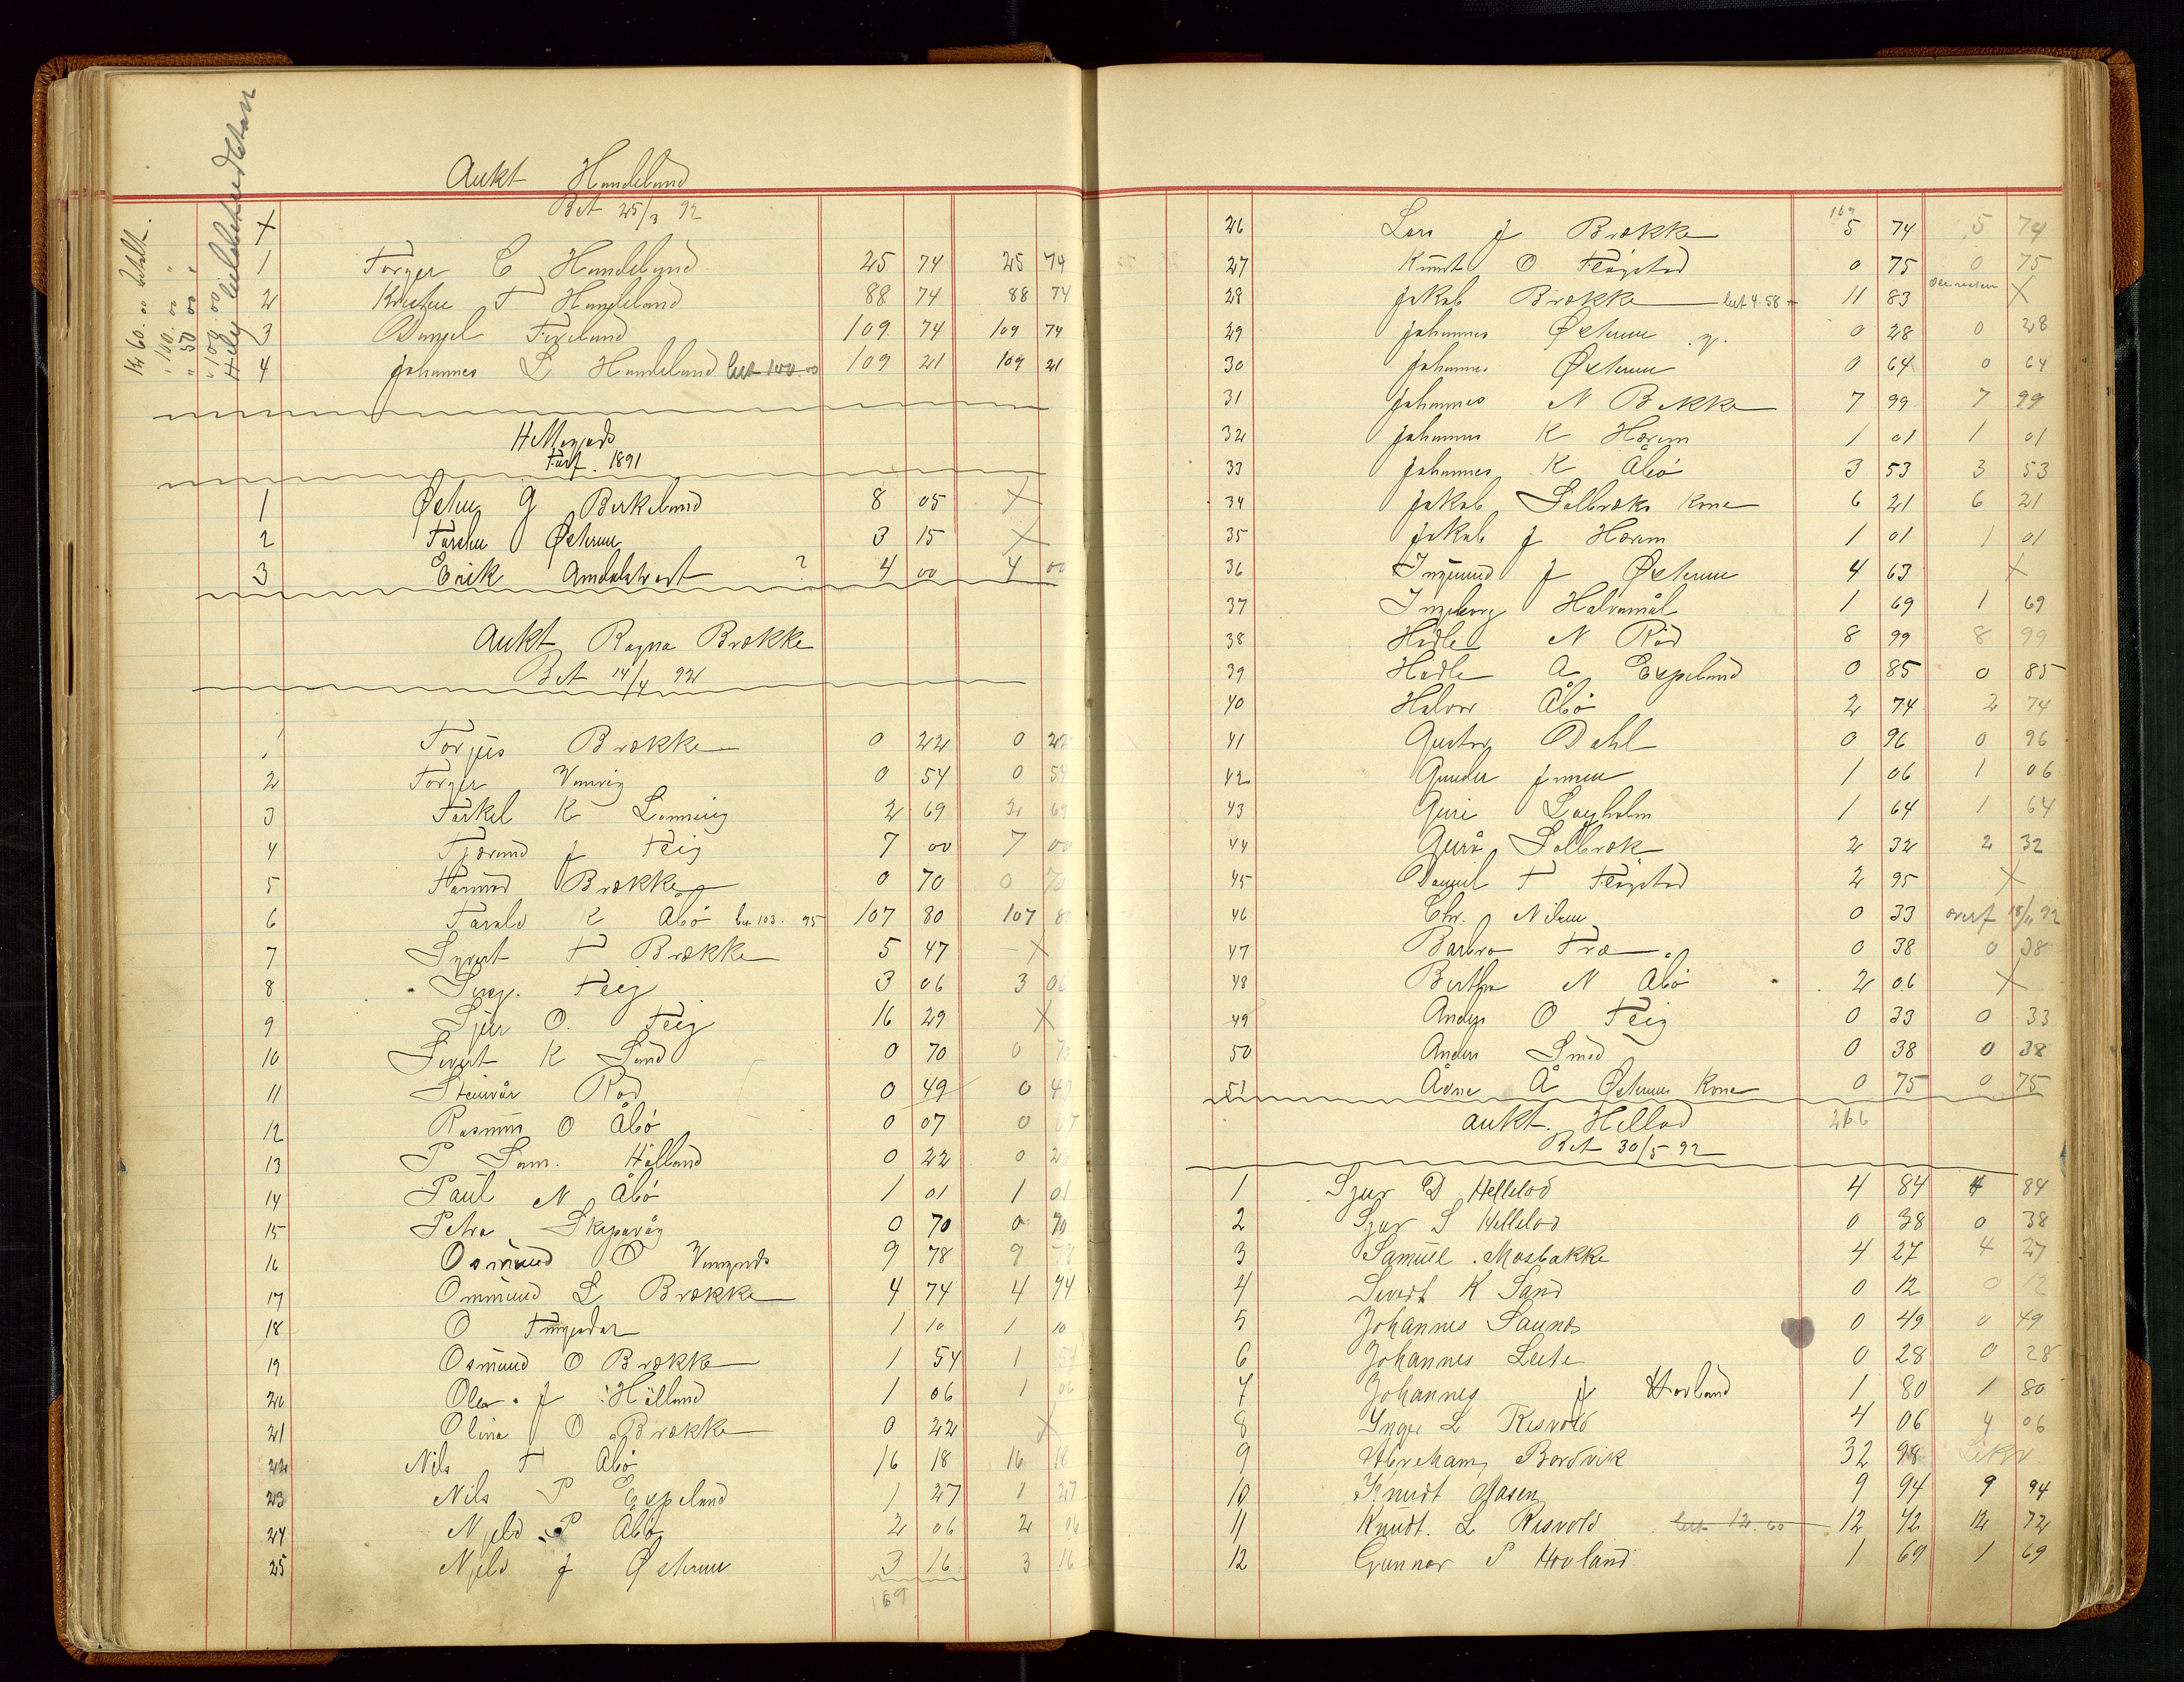 Aukt Handeland
Bet 25/3 92
Kr 60.00 betalt
" 100.00 "
" 50 00 "
" 100 00
X
1 Torger C Handeland 25 74 25 74
2 Kristen T Handeland 88 74 88 74
3 Daniel 109 74 109 74
4 Johannes L Handeland bet 100.00 109 21 109 21
1891
1 Østen G Birkeland 8 05 X
2 Østerun 3 15 X
3 Erik Amdalstrart ? 4 00 4 00
Aukt Ragna Brække
Bet 14/4 92
1 Torjus Brække 0 22 0 22
2 Torger 0 54 0 54
3 Torkel K Lonning 2 69 2 69
4 Tjærand J Teig 7 00 7 00
5 Brække 0 70 0 70
6 Tarald K Åbö bet 103. 95 107 80 107 8
7 Syvert T Brække 5 47 X
8 Teig 3 06 3 06
9 Sjur O. Teig 16 29 X
10 Sivert K Sand 0 70 0 70
11 Steinvår Röd 0 49 0 49
12 Rasmus O Åbö 0 07 0 07
13 P Sam. Hålland 0 22 0 22
14 Paul N Åbö 1 01 1 01
15 Petra Skepevåg 0 70 0 70
16 Osmund O 9 78 9 78
17 Ommund L Brække 4 74 4 74
18 O 1 10 1 10
19 Osmund O Brække 1 54 1 54
20 Olea J Hålland 1 06 1 06
21 Olina O Brække 0 22 X
22 Nils T Åbö 16 18 16 18
23 Nils P Espeland 1 27 1 27
24 Njeld P Åbö 2 06 2 06
25 Njeld J Østerun 3 16 3 16
169
169
26 Lars J Brække 5 74 5 74
27 Knudt O Flögstad 0 75 0 75
28 Jakob Brække bet 4.58 11 83 X
29 Johannes Østerun y. 0 28 0 28
30 Johannes Østerun 0 64 0 64
31 Johannes N Bække 7 99 7 99
32 Johannes K Hærem 1 01 1 01
33 Johannes K Åbö 3 53 3 53
34 Jakob Solbræks Kone 6 21 6 21
35 Jakob J Hærem 1 01 1 01
36 Ingmund J Østerun 4 63 X
37 Ingeborg Halvemål 1 69 1 69
38 Hadle N Röd 8 99 8 99
39 Hadle A Espeland 0 85 0 85
40 Halvor Åbö 2 74 2 74
41 Gustav Dahl 0 96 0 96
42 Gunder Jensen 1 06 1 06
43 Guri Løyholm 1 64 1 64
44 Guro Solbræk 2 32 2 32
45 Daniel T Flögstad 2 95 X
46 Chr. Nilsen 0 33 overf 18/11 92
47 Barbro 0 38 0 38
48 Bertha N Åbö 2 06 X
49 Anders O Teig 0 33 0 33
50 Anders Smed 0 38 0 38
51 Ådne Å Østerun Kone 0 75 0 75
aukt. Hellod 266
Bet 30/5 92
1 Sjur D Hellelod 4 84 4 84
2 Sjur S Hellelod 0 38 0 38
3 Samuel Mosbakke 4 27 4 27
4 Sivert K Sand 0 12 0 12
5 Johannes Saunes 0 49 0 49
6 Johannes Leite 0 28 0 28
7 Johannes J Hovland 1 80 1 80
8 Inger L Risvold 4 06 4 06
9 Abraham Bordvik 32 98
10 Knudt Aasen 9 94 9 94
11 Knudt. L Risvold bet 12.60 12 72 12 72
12 Gunnar P Hovland 1 69 1 69